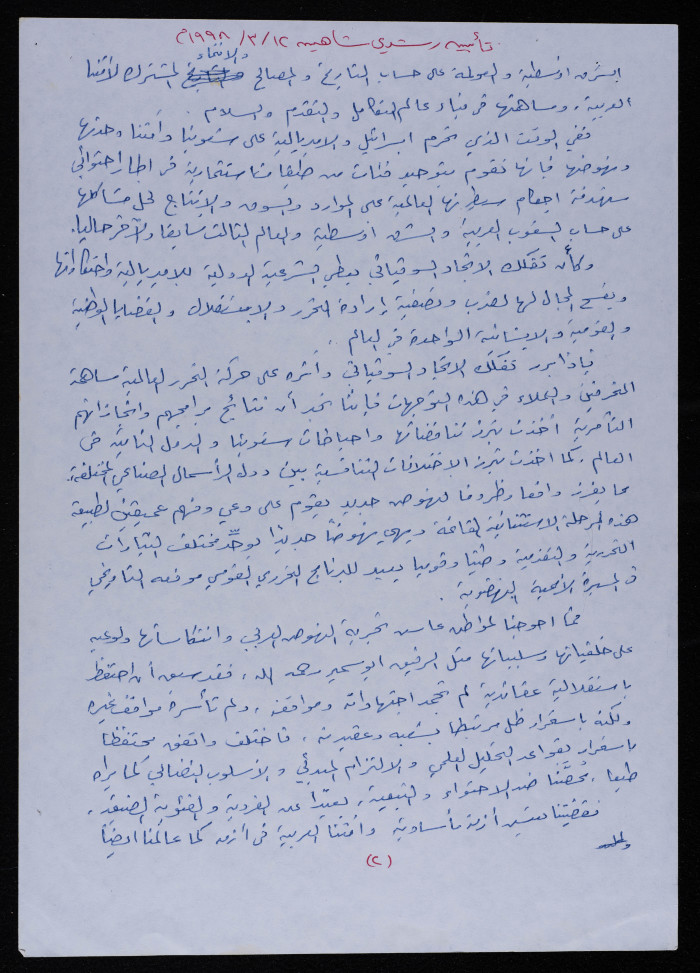 تأبين رشدي شاهين ١٢/٣/١٩٩٨م
والانتماء
الشرق اوسطية والعولمة على حساب التاريخ والمصالح المشترك لأمتنا
العربية، ومساهمتها في بناء عالم التكامل والتقدم والسلام.
ففي الوقت الذي تحرم اسرائيل والامبريالية على شعوبنا وأمتنا وحدتها
ونهوضها فإنها تقوم بتوحيد فئات من طبقات استثمارية في اطار احتوائي
مستهدفة احكام سيطرتها العالمية على الموارد والسوق والانتاج لحل مشاكلها
على حساب الشعوب العربية والشرق اوسطية والعالم الثالث سابقا والآخر حاليا.
وكأن تفكك الاتحاد السوفياتي يعطي الشرعية الدولية للامبريالية واحتكاراتها
ويفسح المجال لها لضرب وتصفية إرادة التحرر والاستقلال والقضايا الوطنية
والقومية والانسانية الواحدة في العالم.
فإذا برر تفكك الاتحاد السوفياتي وأثره على حركة التحرر العالمية مساهمة
المنحرفين والعملاء في هذه التوجهات فإننا نجد أن نتائج برامجهم وانجازاتهم
التآمرية أخذت تبرز تناقضاتها واحباطات شعوبنا والدول النامية في
العالم. كما اخذت تبرز الاختلافات التنافسية بين دول الرأسمال الصناعي المختلفة،
مما يفرز واقعا وظروفا لنهوض جديد يقوم على وعي وفهم عميقين لطبيعة
هذه المرحلة الاستثنائية القائمة ويهيء نهوضا جديدا يوحّد مختلف التيارات
التحررية والتقدمية وطنيا وقوميا يعيد للبرنامج التحرري القومي موقعه التاريخي
في المسيرة الأممية النهضوية.
فما احوجنا لمواطن عايش تجربة النهوض العربي وانتكاساتها ولوعيه
على خلفياتها وسلبياتها مثل الرفيق ابو سمير رحمه الله، فقد سبق أن احتفظ
باستقلالية عقائدية لم تجمد اجتهاداته ومواقفه، ولم تأسره مواقف غيره
ولكنه باستمرار ظل مرتبطا بشعبه وعقيدته، فاختلف واتفق محتفظا
باستمرار بقواعد التحليل العلمي والالتزام المبدئي والأسلوب النضالي كما يراه
طبعا، محصّنا ضد الاحتواء والتبعية، بعيدا عن الفردية والفئوية الضيقة.
فقضيتنا تعيش أزمة مأساوية وأمتنا العربية في أزمة كما عالمنا ايضاً
(٢)